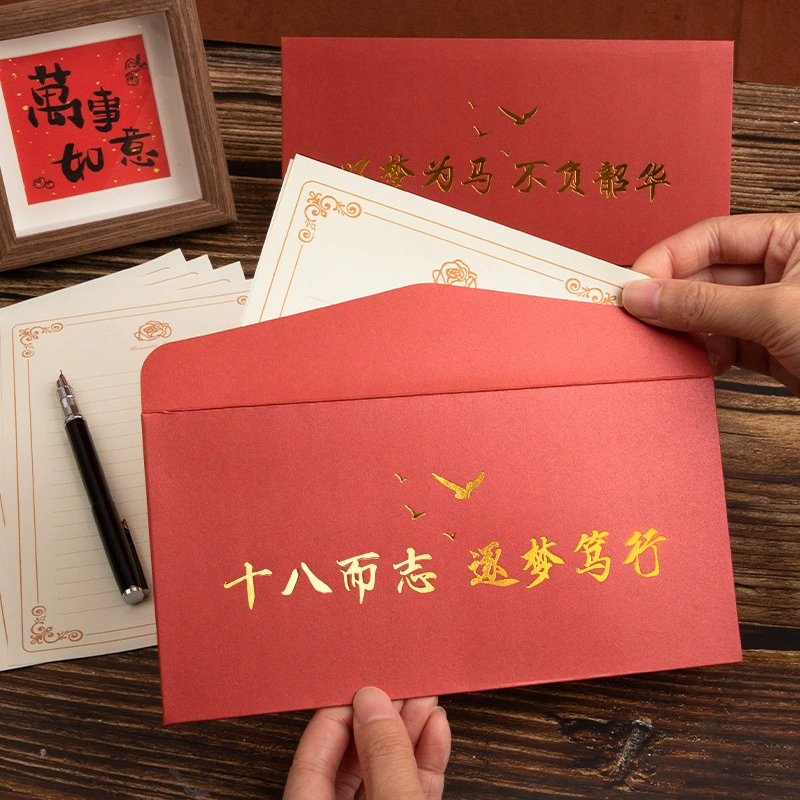 萬事
如意
以梦为马 不负韶华
十八而志 逐梦笃行